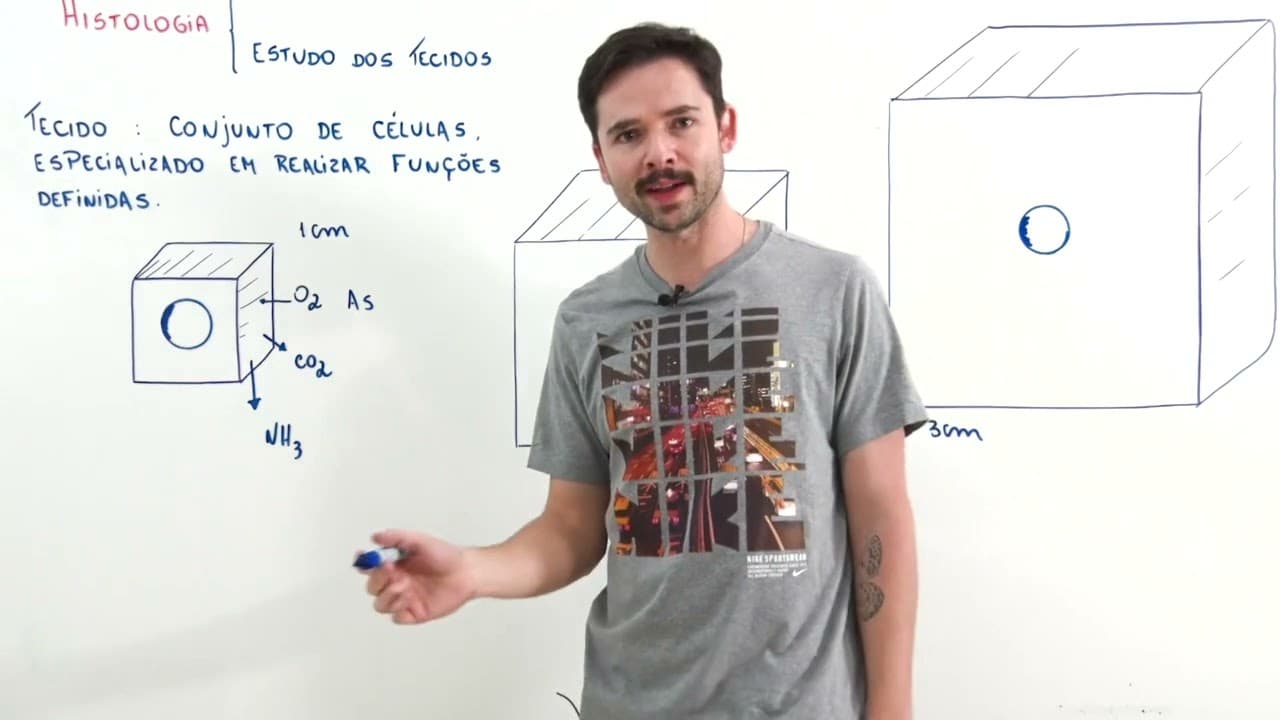 HISTOLOGIA
ESTUDO DOS TECIDOS
TECIDO : CONJUNTO DE CÉLULAS,
ESPECIALIZADO EM REALIZAR FUNÇÕES
DEFINIDAS.
1cm
O2 As
CO2
NH3
3cm
NIKE SPORTSWEAR